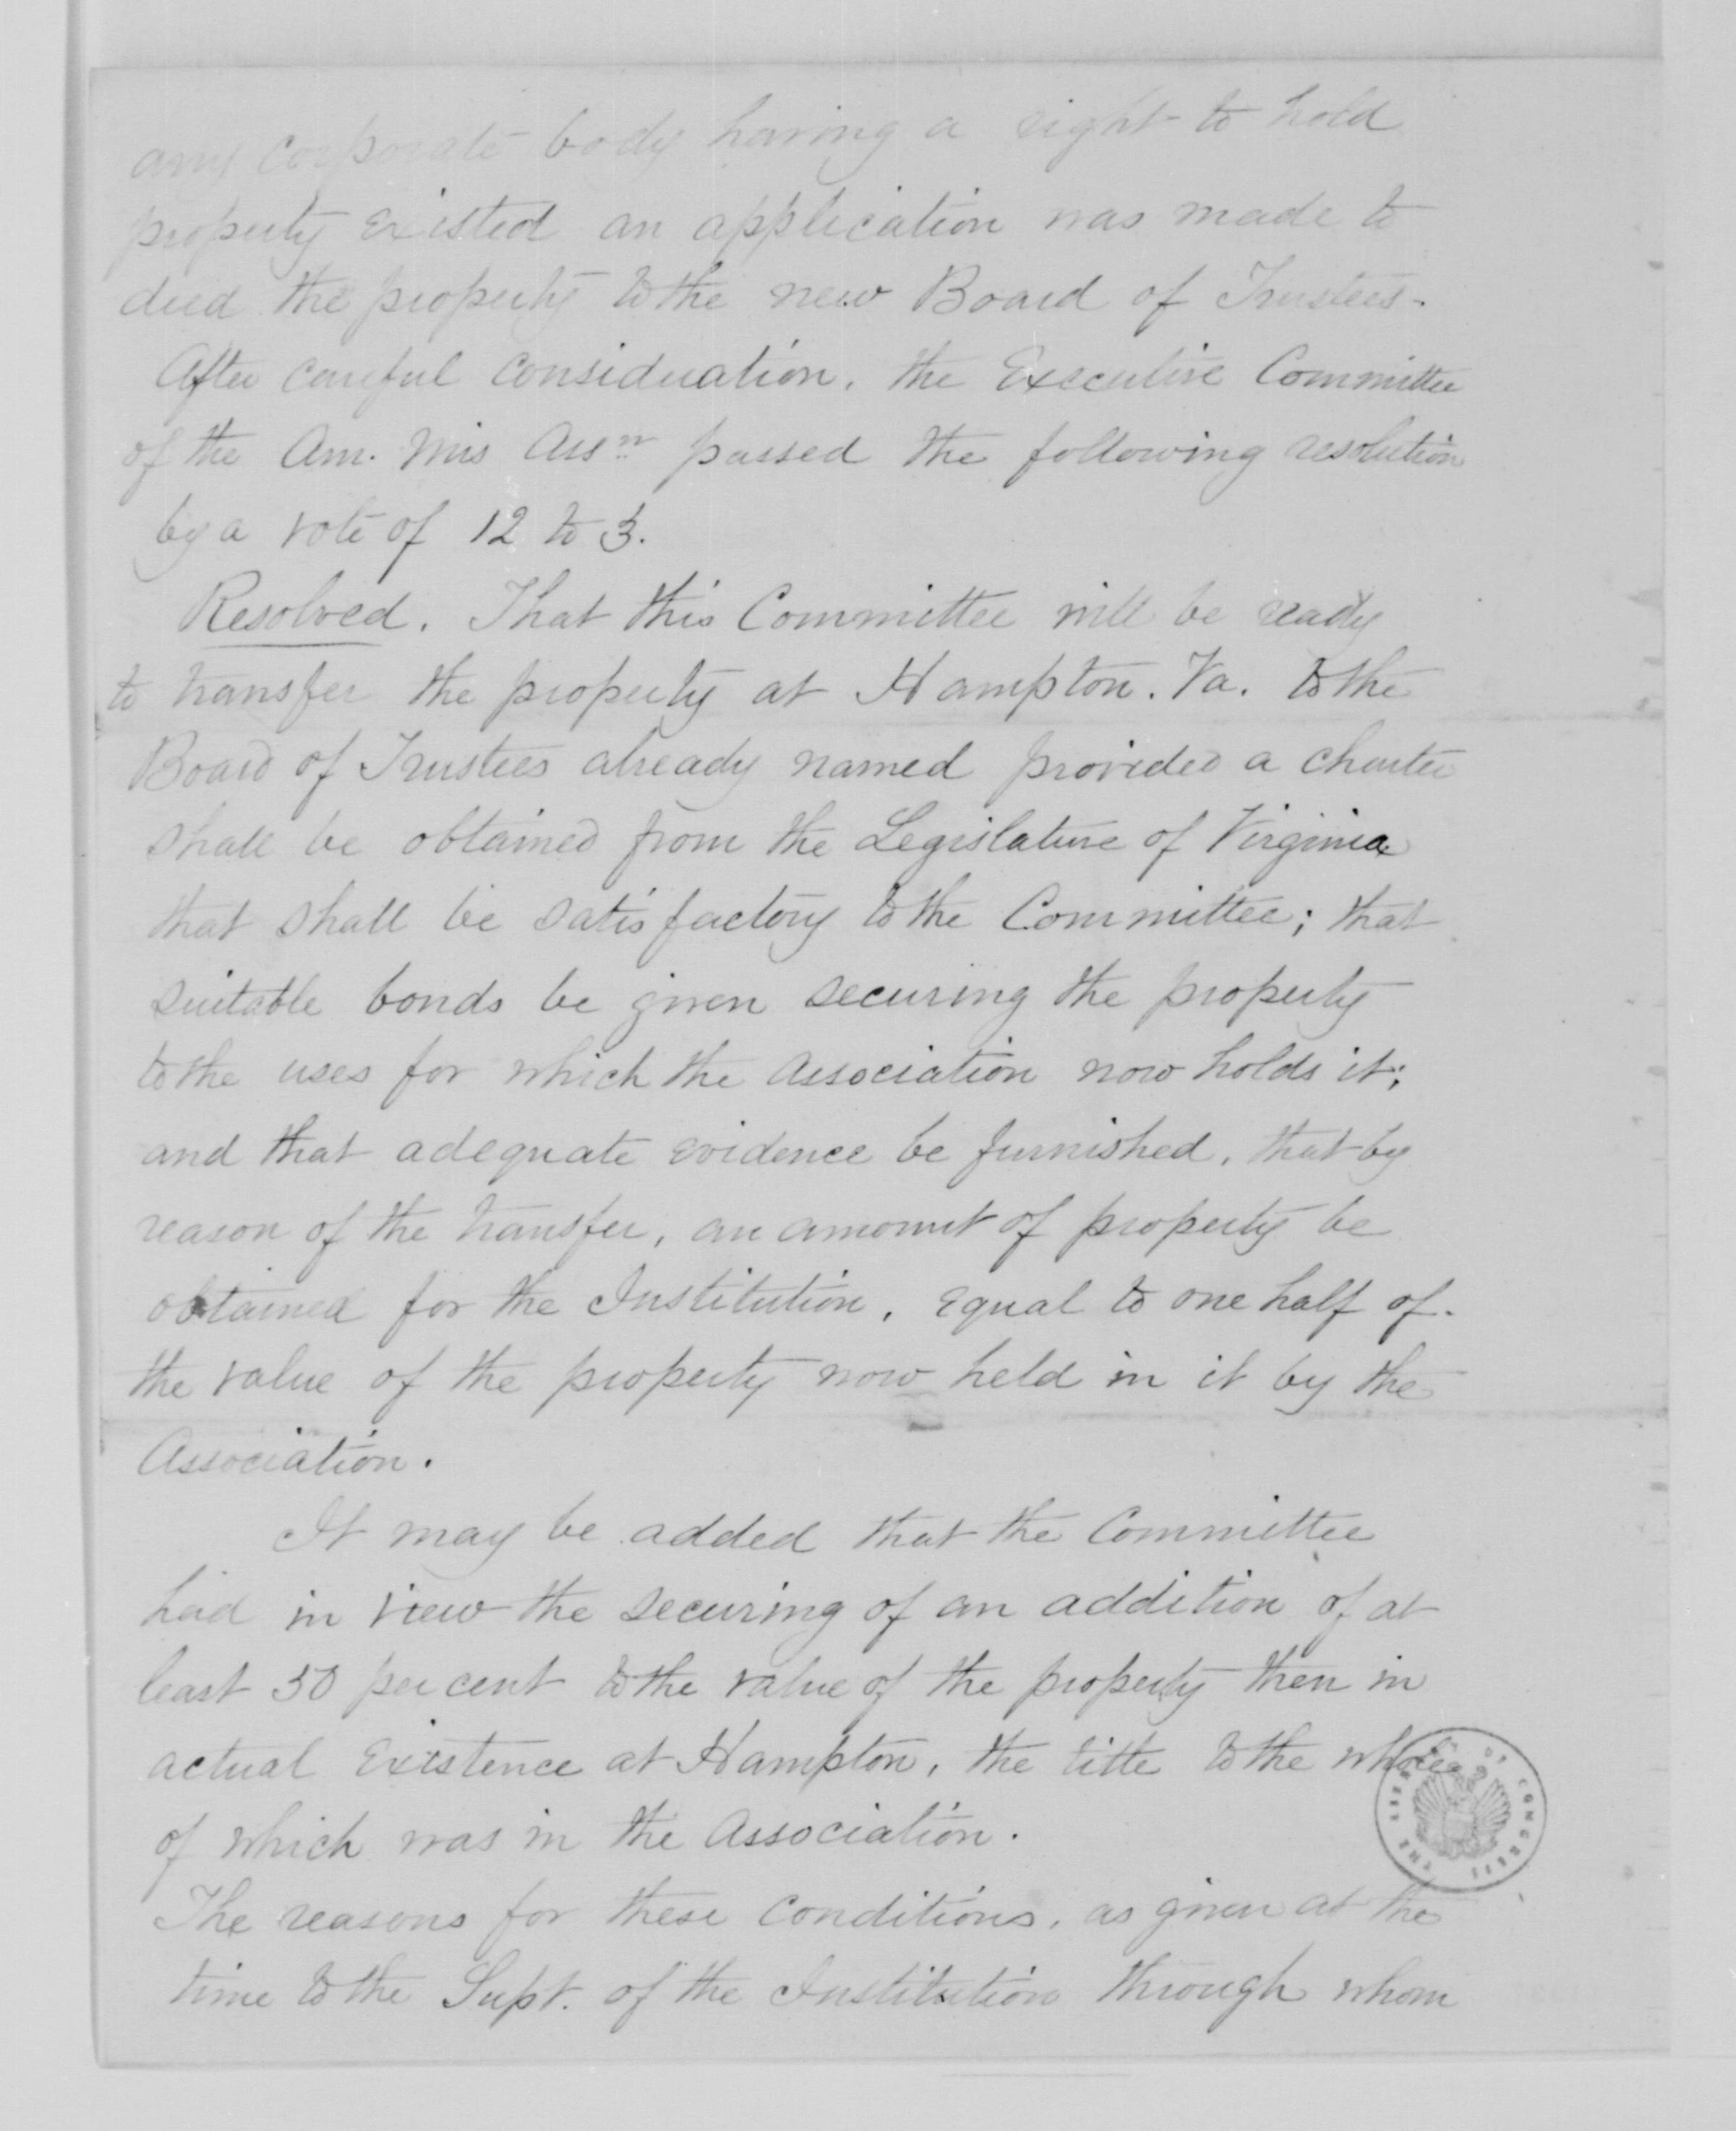 any corporate body having a right to hold
property existed an application was made to
deed the property to the new Board of Trustees.
After careful consideration, the Executive Committee
of the Am. Mis Assn passed the following resolution
by a vote of 12 to 3.
Resolved. That this Committee will be ready
to transfer the property at Hampton. Va. to the
Board of Trustees already named provided a charter
shall be obtained from the Legislature of Virginia
that shall be satisfactory to the Committee; that
suitable bonds be given securing the property
to the uses for which the Association now holds it;
and that adequate evidence be furnished, that by
reason of the transfer, an amount of property be
obtained for the Institution, equal to one half of
the value of the property now held in it by the
Association.
It may be added that the Committee
had in view the securing of an addition of at
least 50 per cent to the value of the property then in
actual existence at Hampton, the title to the whole
of which was in the Association.
The reasons for these conditions, as given at the
time to the Supt. of the Institution through whom
THE LIBRARY OF CONGRESS